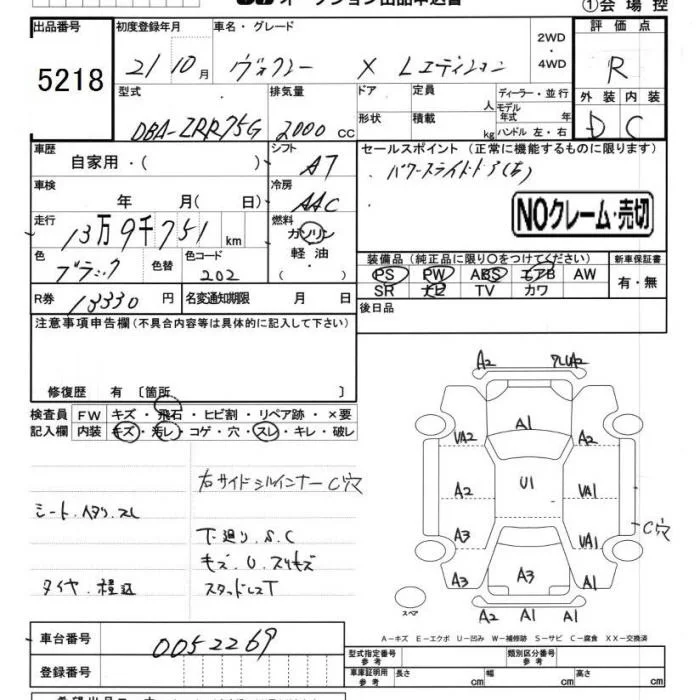 オークション出品申込書 ①会場控
出品番号 初度登録年月 車名・グレード 評価点
5218 21 10月 ヴォクシー X Lエディション 2WD・4WD R
型式 排気量 ドア 定員 人 ディーラー・並行 外装 内装
DBA-ZRR75G 2000cc 形状 積載 kg モデル年式 年 ハンドル 左・右 D C
車歴 シフト セールスポイント（正常に機能するものに限ります）
自家用・（ ） A7 パワースライドドア(右)
車検 冷房
年 月（ 日） AAC NOクレーム・売切
走行 燃料
13万9千751km ガソリン
軽油
・（ ）
色 色替 色コード 装備品（純正品に限り○をつけてください） 新車保証書
ブラック 202 PS PW ABS エアB AW 有・無
SR ナビ TV カワ
R券 13330円 名変通知期限 月 日 後日品
注意事項申告欄（不具合内容等は具体的に記入して下さい）
修復歴 有〔箇所 〕
検査員 FW キズ・飛石・ヒビ割・リペア跡・×要
記入欄 内装 キズ・汚レ・コゲ・穴・スレ・キレ・破レ
右サイドシルインナーC穴
シート.ヘタリ.スレ
下廻り.S.C
キズ.U.スリキズ
タイヤ.積込 スタッドレスT
A2
A1
VA2 A2
A2 U1 VA1
C穴
A3 VA1
A3 A3 A1
スペア
A2 A1 A1
A－キズ E－エクボ U－凹み W－補修跡 S－サビ C－腐食 XX－交換済
車台番号 0052269 型式指定番号 参考 類別区分番号 参考
登録番号 車庫証明用 参考 長さ cm 幅 cm 高さ cm